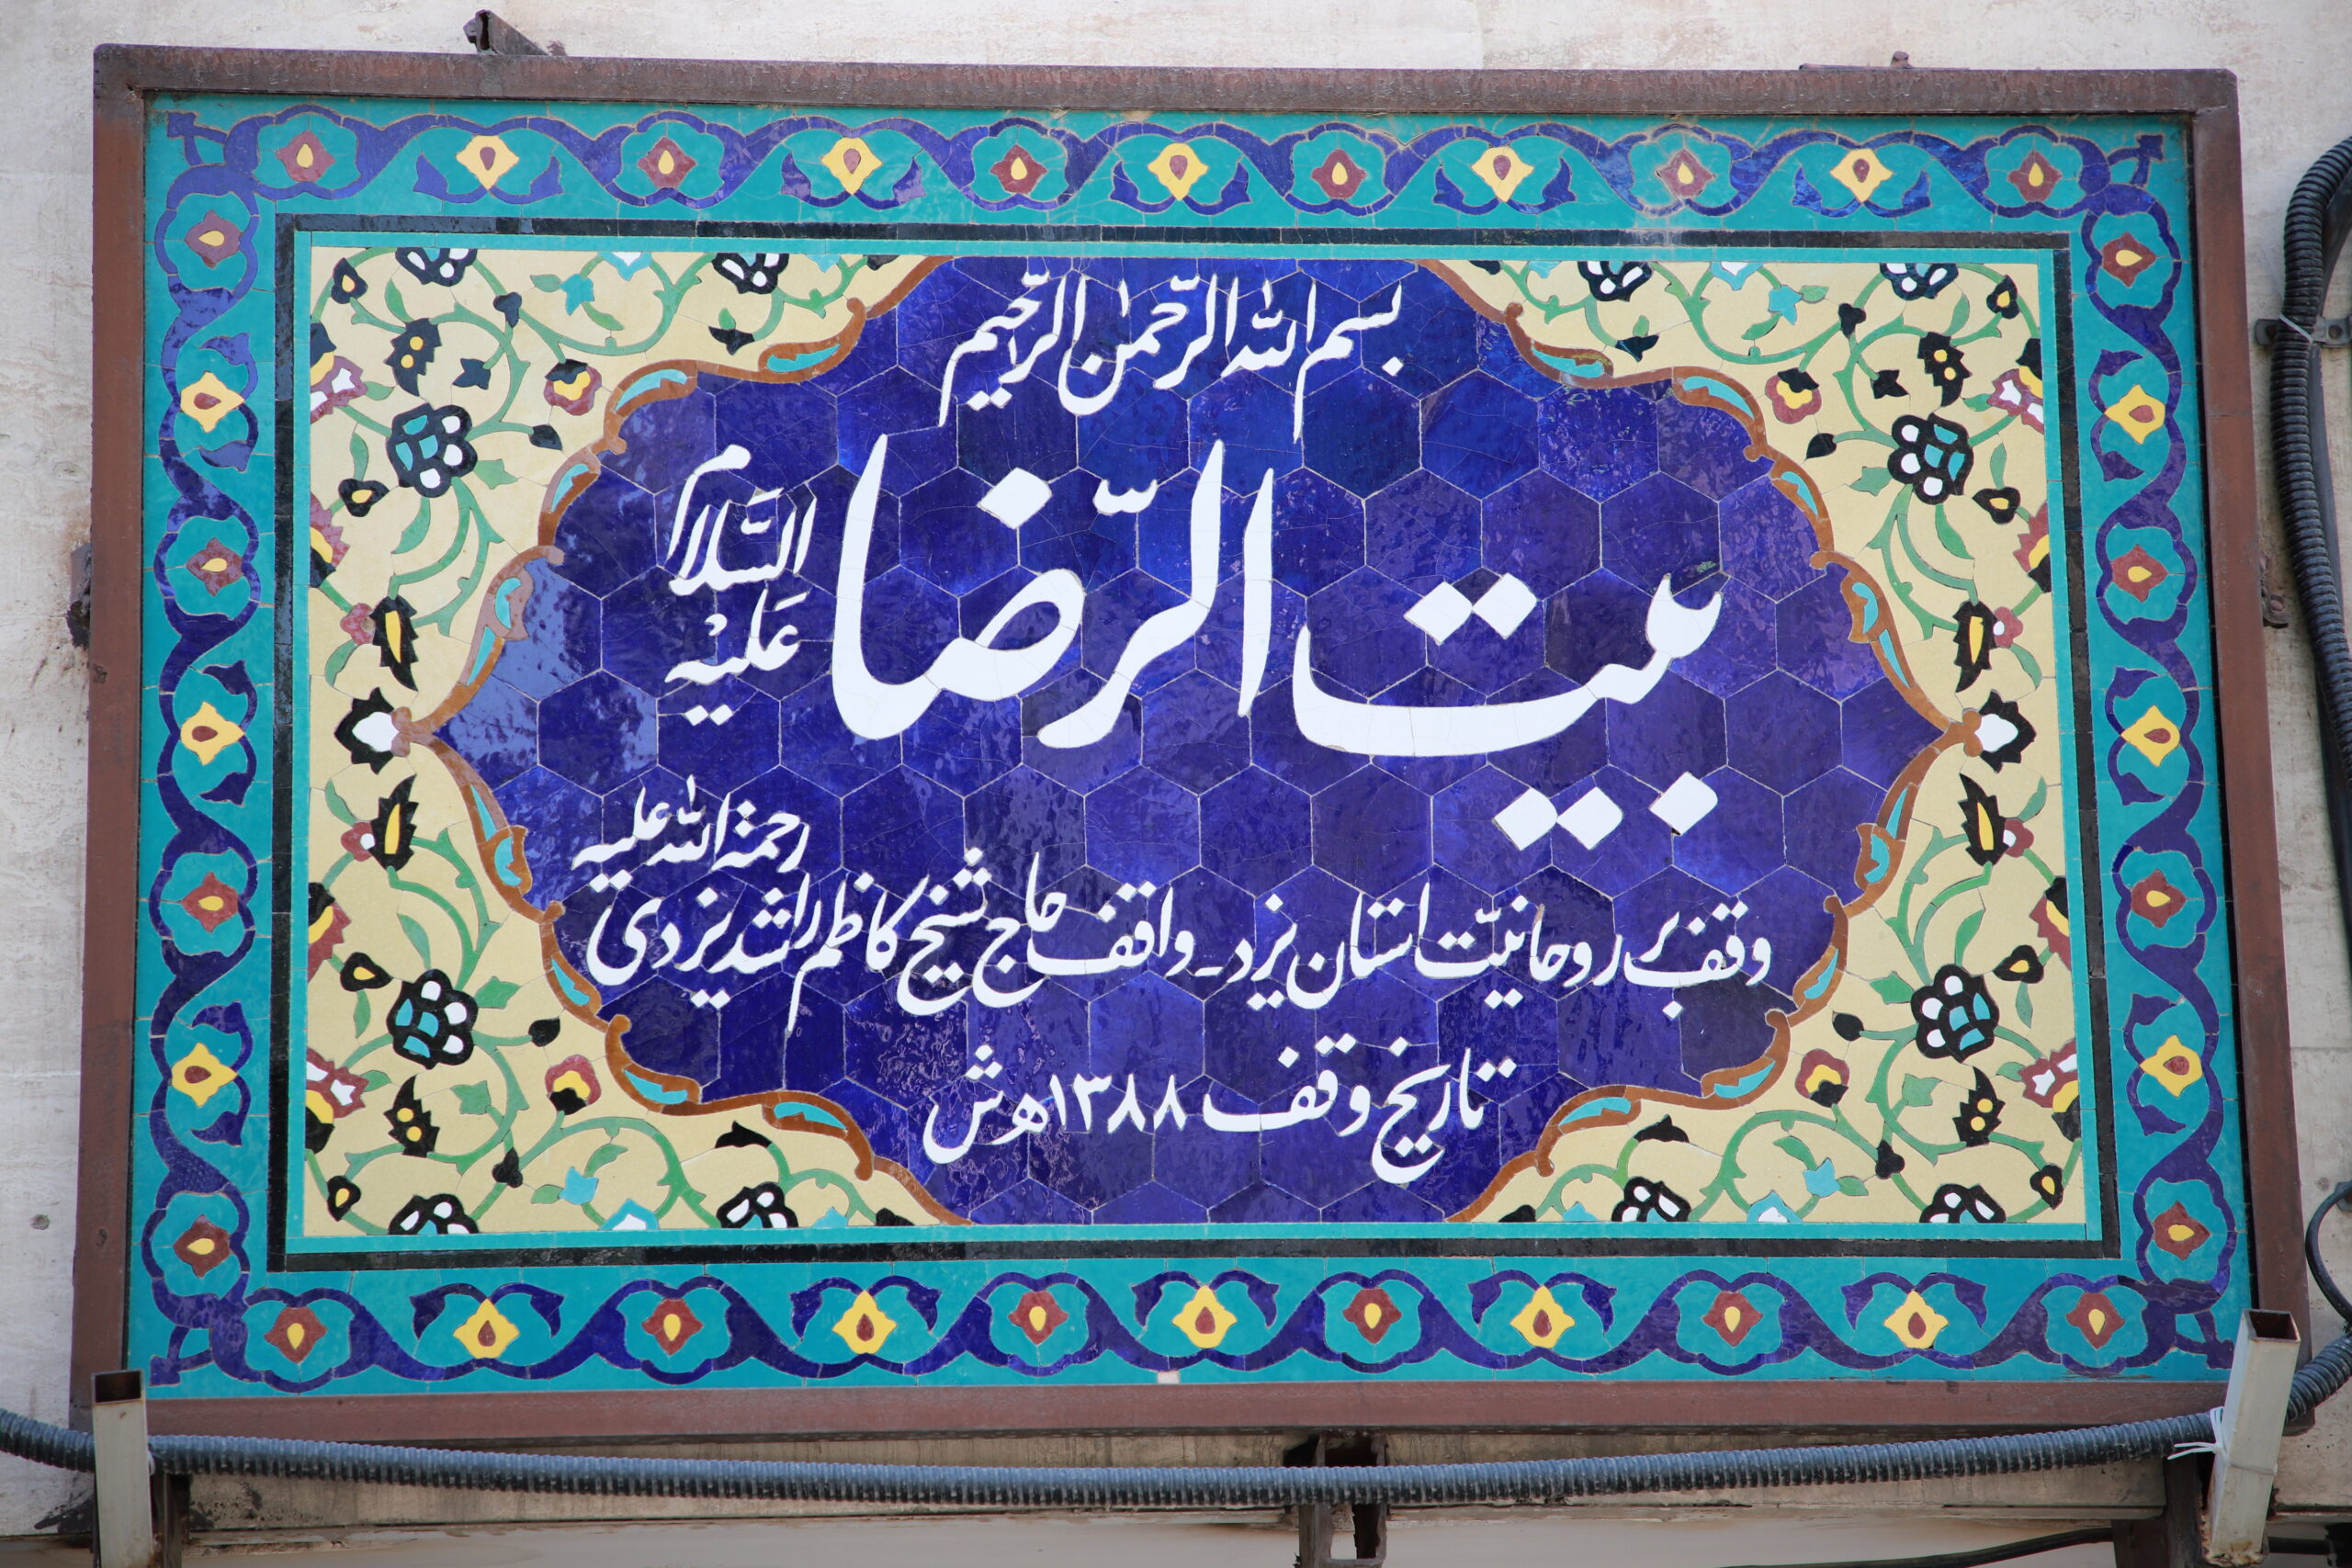 بسم الله الرّحمٰن الرّحیم
بیت الرّضا عَلَیْه السَّلام
وقف بر روحانیّت استان یزد - واقف حاج شیخ کاظم راشد یزدی رحمة الله علیه
تاریخ وقف ۱۳۸۸ ه ش